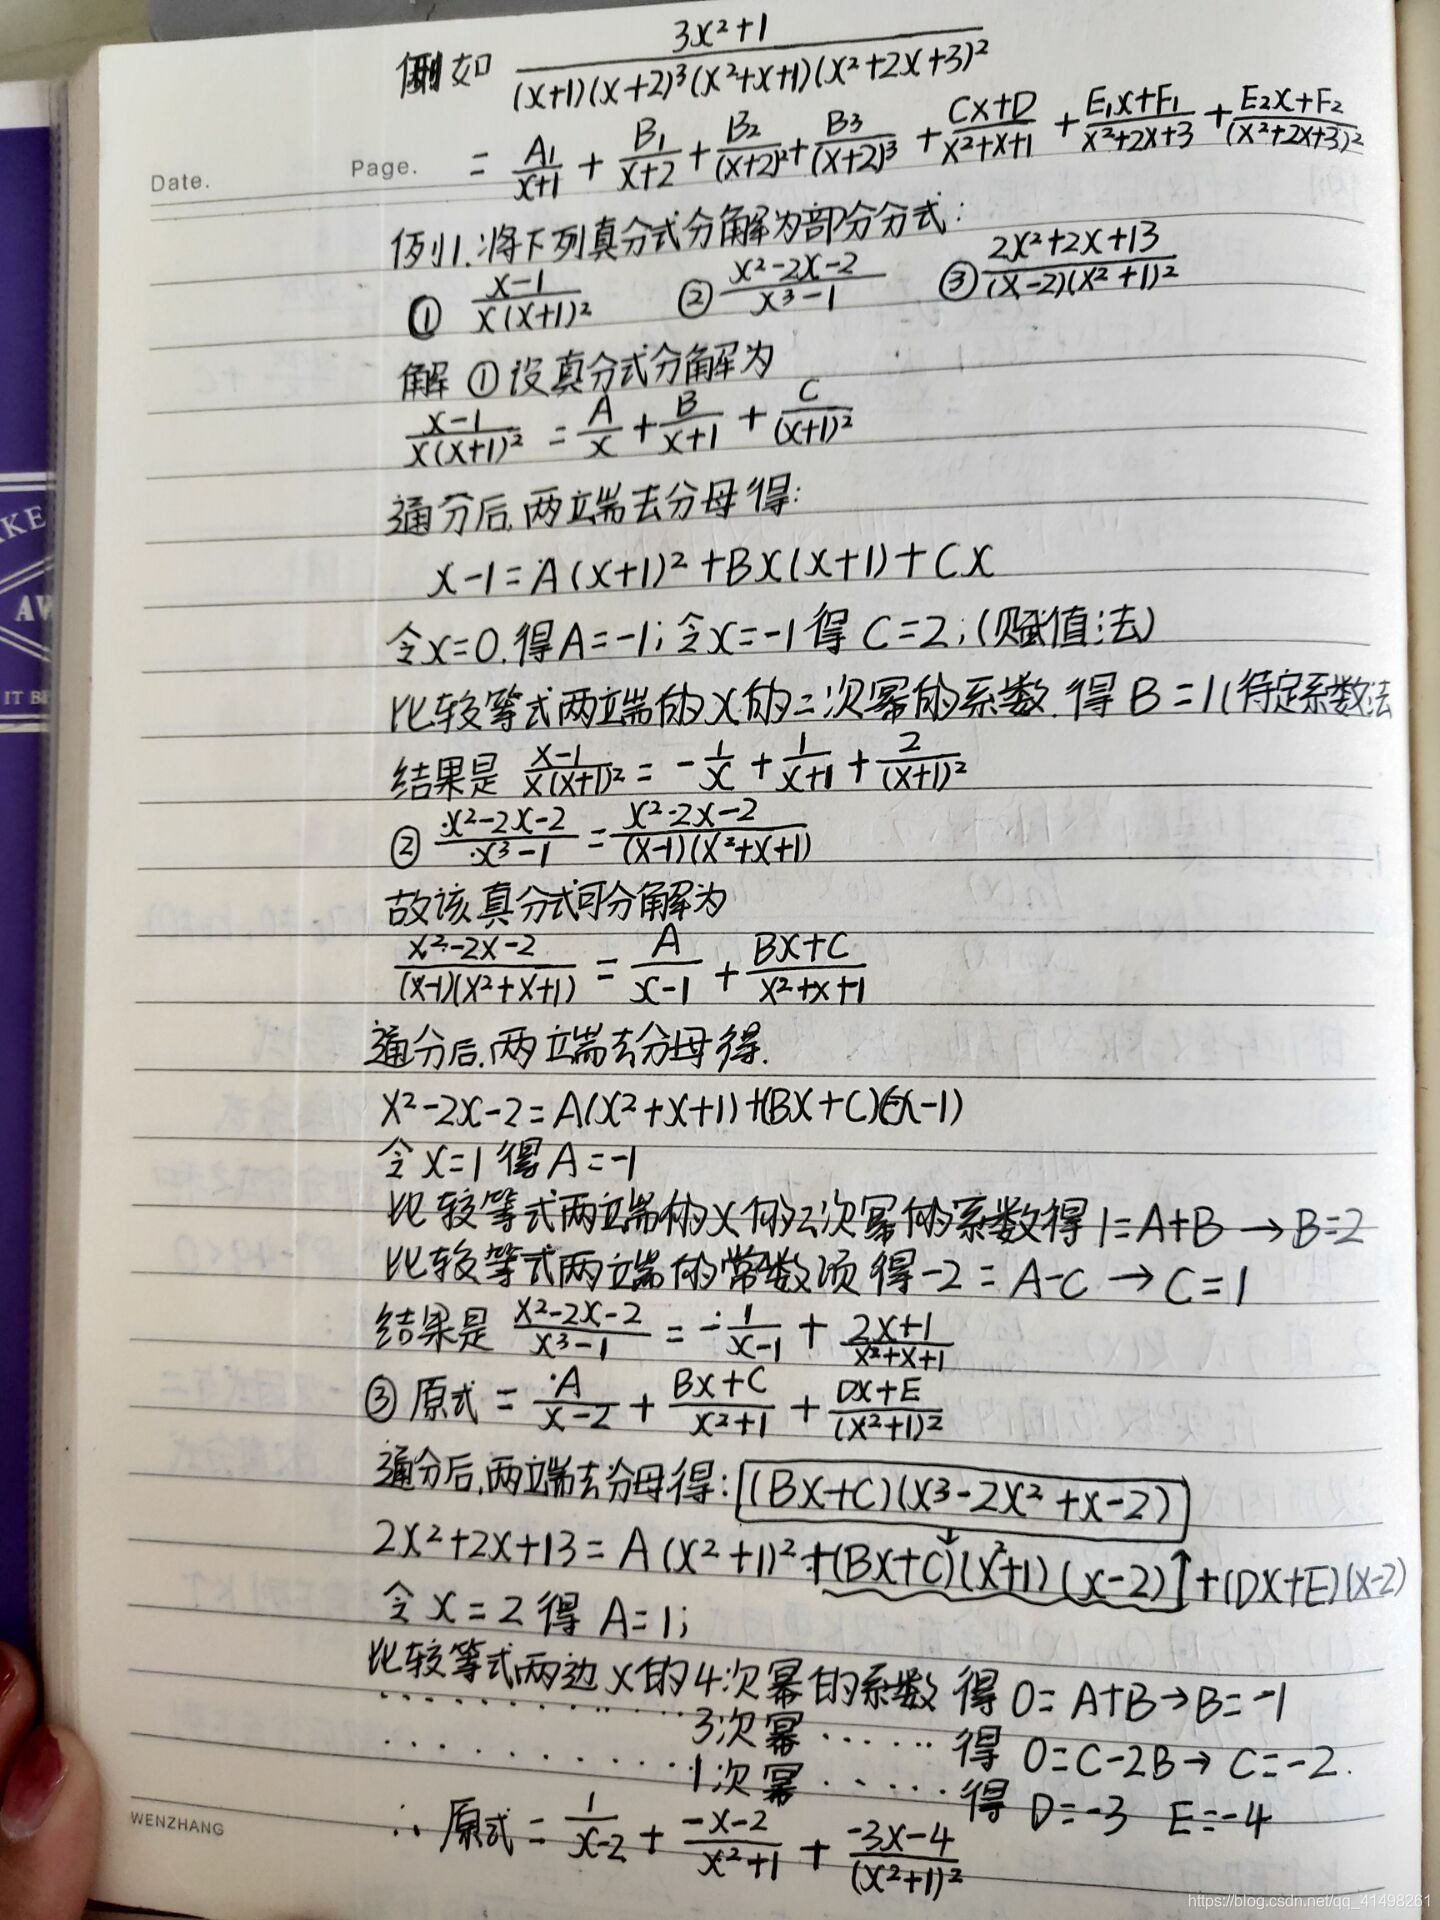 例如 (3x²+1)/((x+1)(x+2)³(x²+x+1)(x²+2x+3)²)
= A₁/(x+1) + B₁/(x+2) + B₂/(x+2)² + B₃/(x+2)³ + (Cx+D)/(x²+x+1) + (E₁x+F₁)/(x²+2x+3) + (E₂x+F₂)/(x²+2x+3)²
Date. Page.
例1.将下列真分式分解为部分分式:
① (x-1)/(x(x+1)²) ② (x²-2x-2)/(x³-1) ③ (2x²+2x+13)/((x-2)(x²+1)²)
解 ①设真分式分解为
(x-1)/(x(x+1)²) = A/x + B/(x+1) + C/(x+1)²
通分后,两端去分母得:
x-1=A(x+1)²+Bx(x+1)+Cx
令x=0.得A=-1;令x=-1得C=2;(赋值法)
比较等式两端的x的二次幂的系数.得B=1(待定系数法
结果是 (x-1)/(x(x+1)²) = -1/x + 1/(x+1) + 2/(x+1)²
② (x²-2x-2)/(x³-1) = (x²-2x-2)/((x-1)(x²+x+1))
故该真分式可分解为
(x²-2x-2)/((x-1)(x²+x+1)) = A/(x-1) + (Bx+C)/(x²+x+1)
通分后,两端去分母得.
x²-2x-2=A(x²+x+1)+(Bx+C)(x-1)
令x=1得A=-1
比较等式两端的x的2次幂的系数得1=A+B→B=2
比较等式两端的常数项得-2=A-C→C=1
结果是 (x²-2x-2)/(x³-1) = -1/(x-1) + (2x+1)/(x²+x+1)
③原式 = A/(x-2) + (Bx+C)/(x²+1) + (Dx+E)/(x²+1)²
通分后,两端去分母得: (Bx+C)(x³-2x²+x-2)
2x²+2x+13=A(x²+1)²+(Bx+C)(x²+1)(x-2)+(Dx+E)(x-2)
令x=2得A=1;
比较等式两边x的4次幂的系数得0=A+B→B=-1
············3次幂······得 0=C-2B→C=-2.
············1次幂······得 D=-3 E=-4
∴原式 = 1/(x-2) + (-x-2)/(x²+1) + (-3x-4)/(x²+1)²
WENZHANG
KE
AW
IT BE
https://blog.csdn.net/qq_41498261